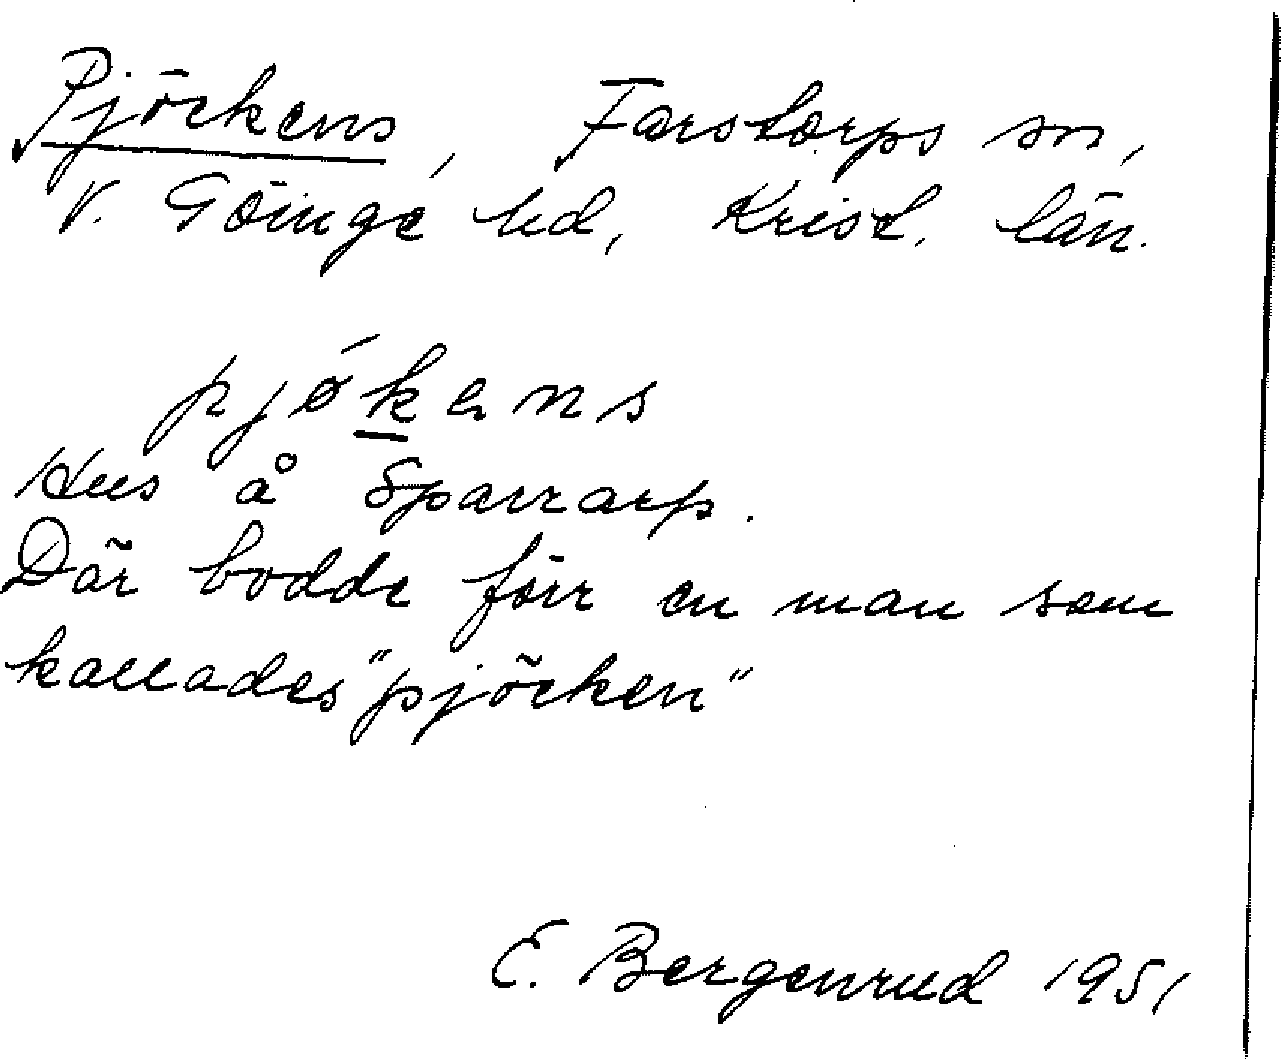 Pjöckens, Farstorps sn,
V. Göinge hd, Krist. län.
pjǿkəns
Hus å Sparrarp.
Där bodde förr en man som
kallades "pjöcken"
E. Bergenrud 1951